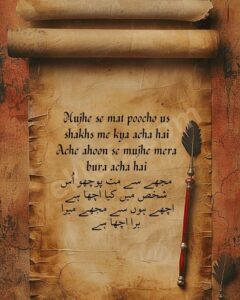 Mujhe se mat poocho us
shakhs me kya acha hai
Ache ahoon se mujhe mera
bura acha hai
مجھے سے مت پوچھو اُس
شخص میں کیا اچھا ہے
اچھے ہوں سے مجھے میرا
برا اچھا ہے